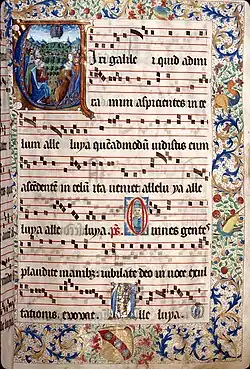 Viri galilei quid admi
ramini aspicientes in ce
lum alle luya quēadmodū vidistis eum
ascēdētē in celū ita veniet allelu ya alle
luya alle luya. ps. Omnes gentes
plaudite manibz iubilate deo in voce exul
tationis. evovae. Alle luya.